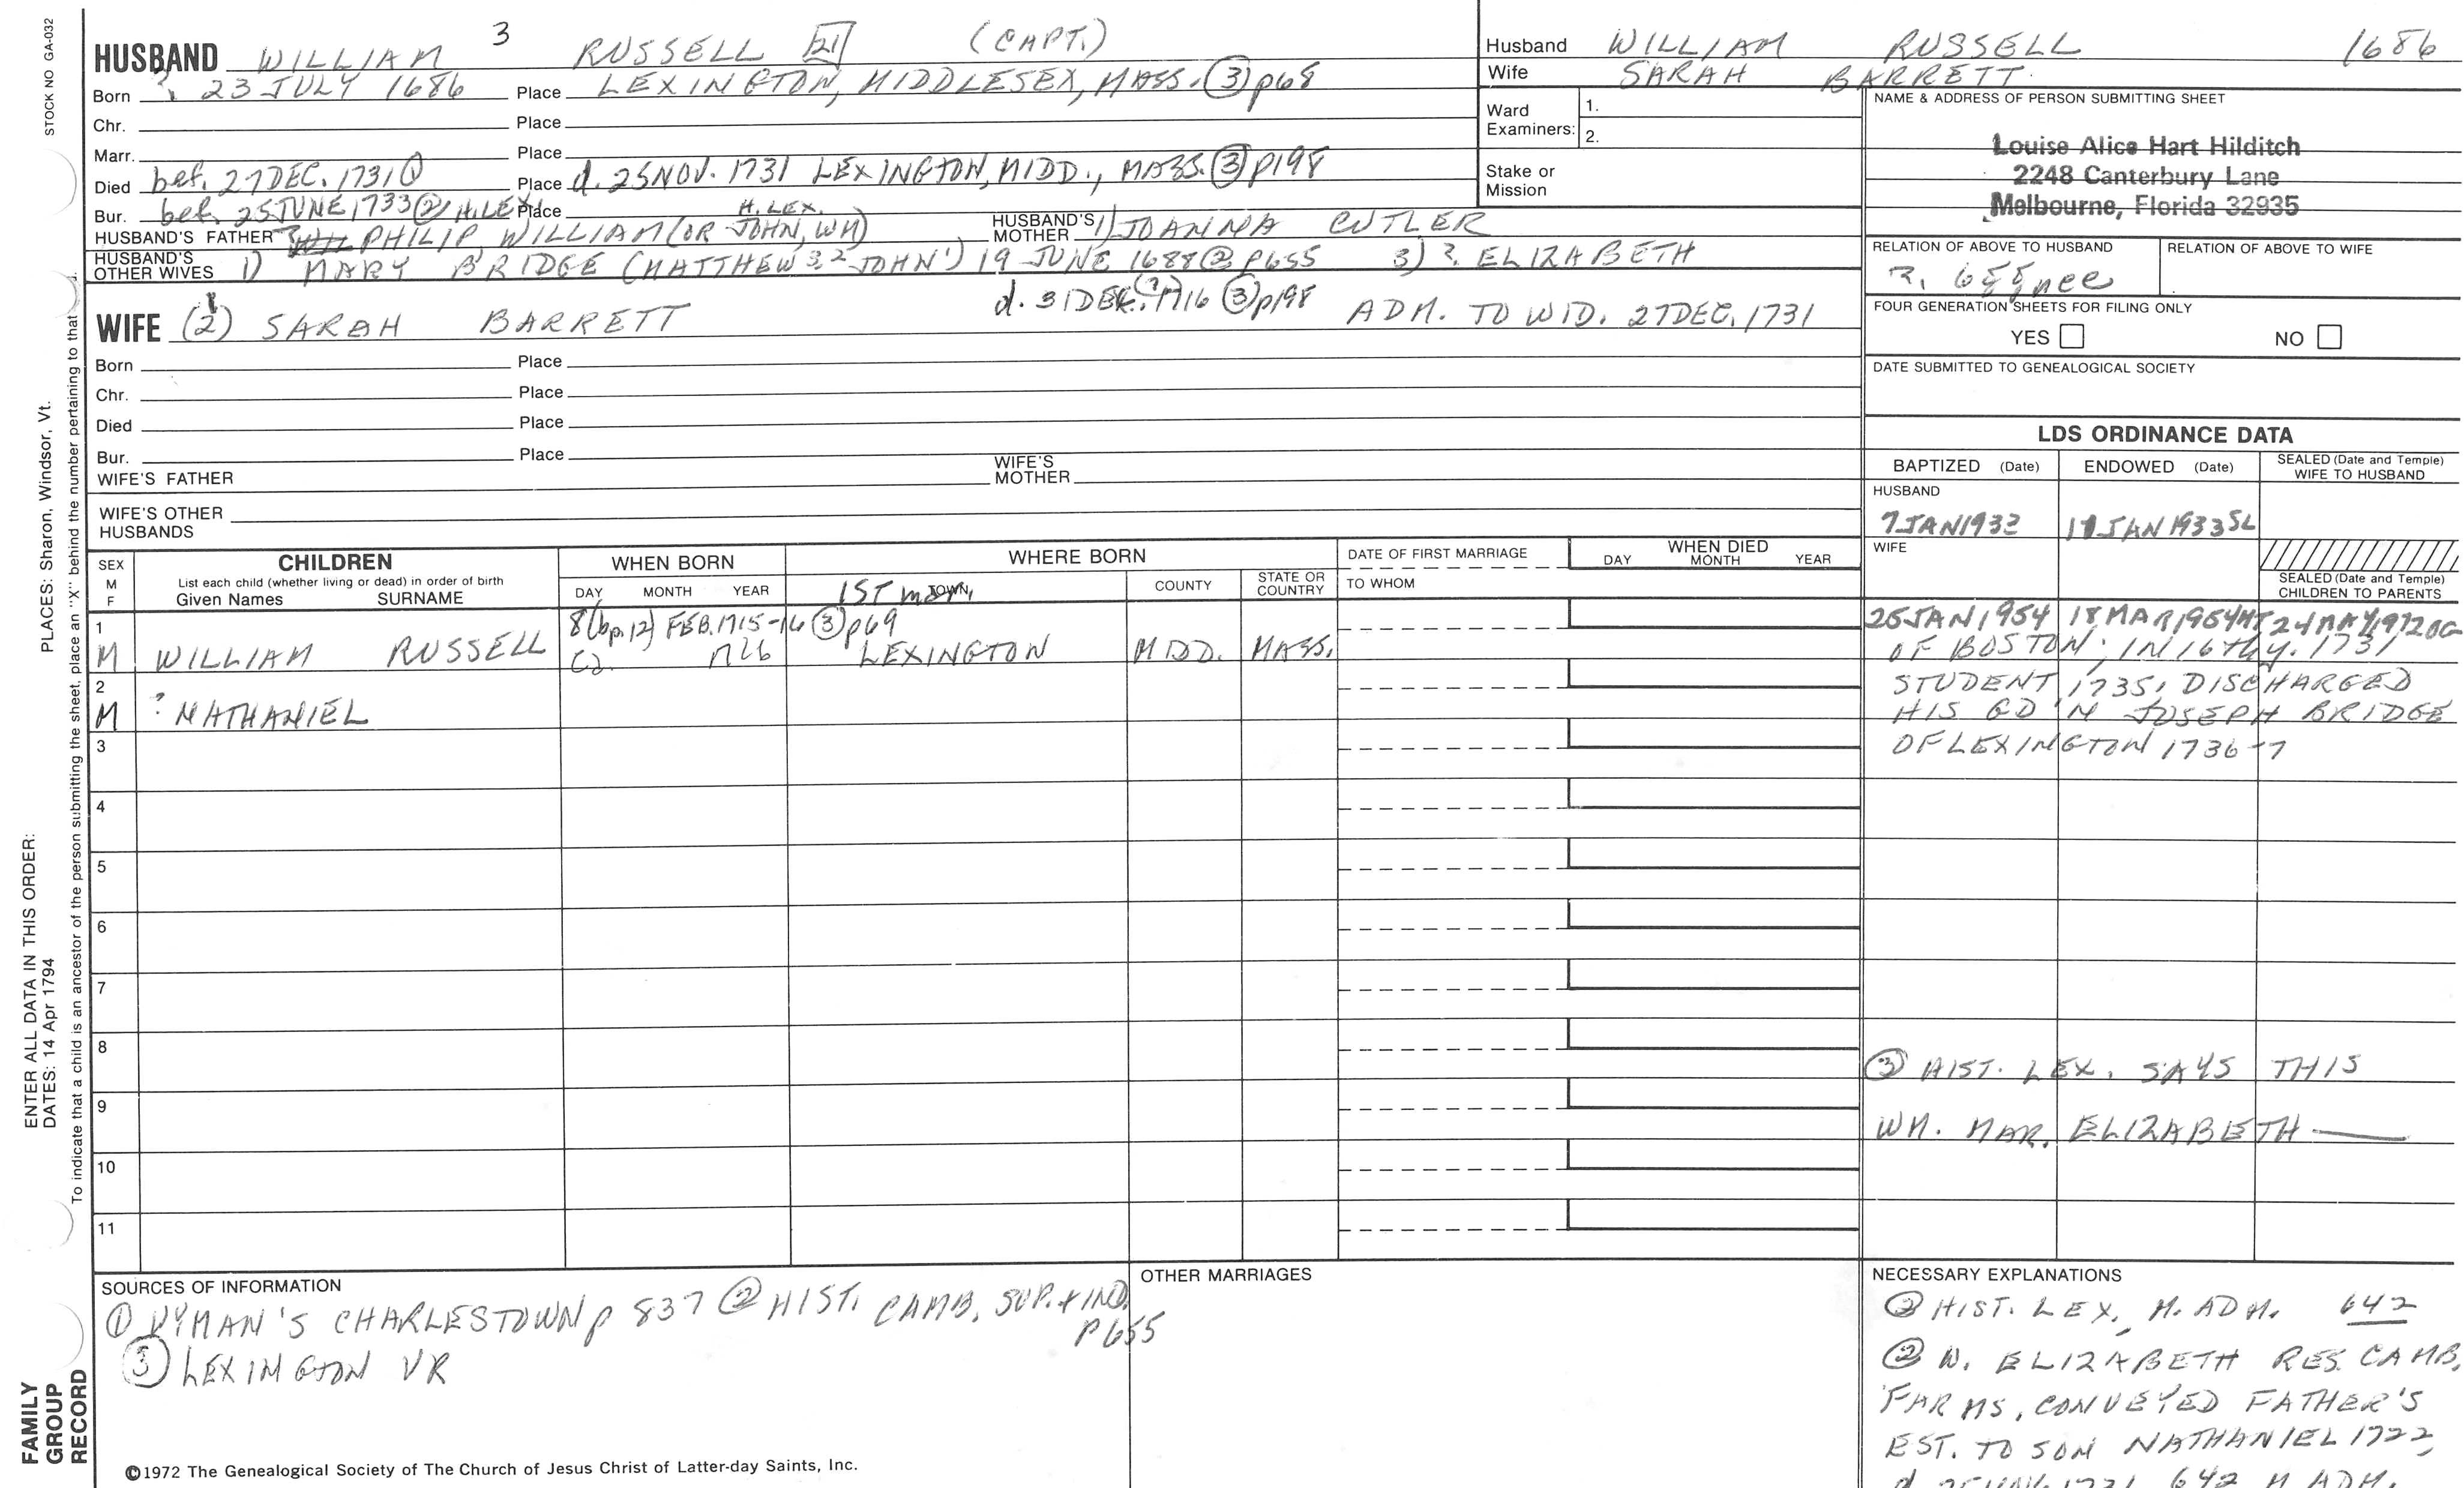 STOCK NO GA-032
HUSBAND WILLIAM 3 RUSSELL 21 (CAPT.)
Born ? 23 JULY 1686 Place LEXINGTON, MIDDLESEX, MASS. (3) p68
Chr. Place
Marr. Place
Died bef. 27 DEC. 1731 (1) Place d. 25 NOV. 1731 LEXINGTON, MIDD., MASS. (3) p198
Bur. bef. 25 JUNE 1733 (2) H. LEX. Place H. LEX.
HUSBAND'S FATHER PHILIP, WILLIAM (OR JOHN, WM) HUSBAND'S MOTHER 1) JOANNA CUTLER
HUSBAND'S OTHER WIVES 1) MARY BRIDGE (MATTHEW 3,2 JOHN 1) 19 JUNE 1688 (2) P655 3) ? ELIZABETH
d. 31 DEC. (?) 1716 (3) p198
WIFE (2) SARAH BARRETT ADM. TO WID. 27 DEC. 1731
Born Place
Chr. Place
Died Place
Bur. Place
WIFE'S FATHER WIFE'S MOTHER
WIFE'S OTHER HUSBANDS
Husband WILLIAM RUSSELL 1686
Wife SARAH BARRETT
Ward Examiners: 1.
2.
Stake or Mission
NAME & ADDRESS OF PERSON SUBMITTING SHEET
Louise Alice Hart Hilditch
2248 Canterbury Lane
Melbourne, Florida 32935
RELATION OF ABOVE TO HUSBAND RELATION OF ABOVE TO WIFE
FOUR GENERATION SHEETS FOR FILING ONLY
YES NO
DATE SUBMITTED TO GENEALOGICAL SOCIETY
LDS ORDINANCE DATA
BAPTIZED (Date) ENDOWED (Date) SEALED (Date and Temple) WIFE TO HUSBAND
HUSBAND
7 JAN 1932 17 JAN 1933 SL
WIFE
SEALED (Date and Temple) CHILDREN TO PARENTS
SEX M F CHILDREN WHEN BORN WHERE BORN DATE OF FIRST MARRIAGE WHEN DIED
List each child (whether living or dead) in order of birth
Given Names SURNAME DAY MONTH YEAR 1ST TOWN COUNTY STATE OR COUNTRY TO WHOM DAY MONTH YEAR
1 8 (bp. 12) FEB. 1715-16 (3) p69 25 JAN 1954 18 MAR 1954 24 MAY 1972 OG
M WILLIAM RUSSELL 1726 LEXINGTON MIDD. MASS. OF BOSTON; IN 16th y. 1731
2 STUDENT 1735, DISCHARGED
M ? NATHANIEL HIS GD'N JOSEPH BRIDGE
3 OF LEXINGTON 1736-7
4
5
6
7
8
(3) HIST. LEX. SAYS THIS
9
WM. MAR. ELIZABETH ——
10
11
SOURCES OF INFORMATION
(1) WYMAN'S CHARLESTOWN p 837 (2) HIST. CAMB. SUP. + IND. P655
(3) LEXINGTON VR
OTHER MARRIAGES
NECESSARY EXPLANATIONS
HIST. LEX. M. ADM. 642
(2) W. ELIZABETH RES. CAMB.
FARMS, CONVEYED FATHER'S
EST. TO SON NATHANIEL 1722,
©1972 The Genealogical Society of The Church of Jesus Christ of Latter-day Saints, Inc.
FAMILY GROUP RECORD
ENTER ALL DATA IN THIS ORDER:
DATES: 14 Apr 1794
PLACES: Sharon, Windsor, Vt.
To indicate that a child is an ancestor of the person submitting the sheet, place an "X" behind the number pertaining to that